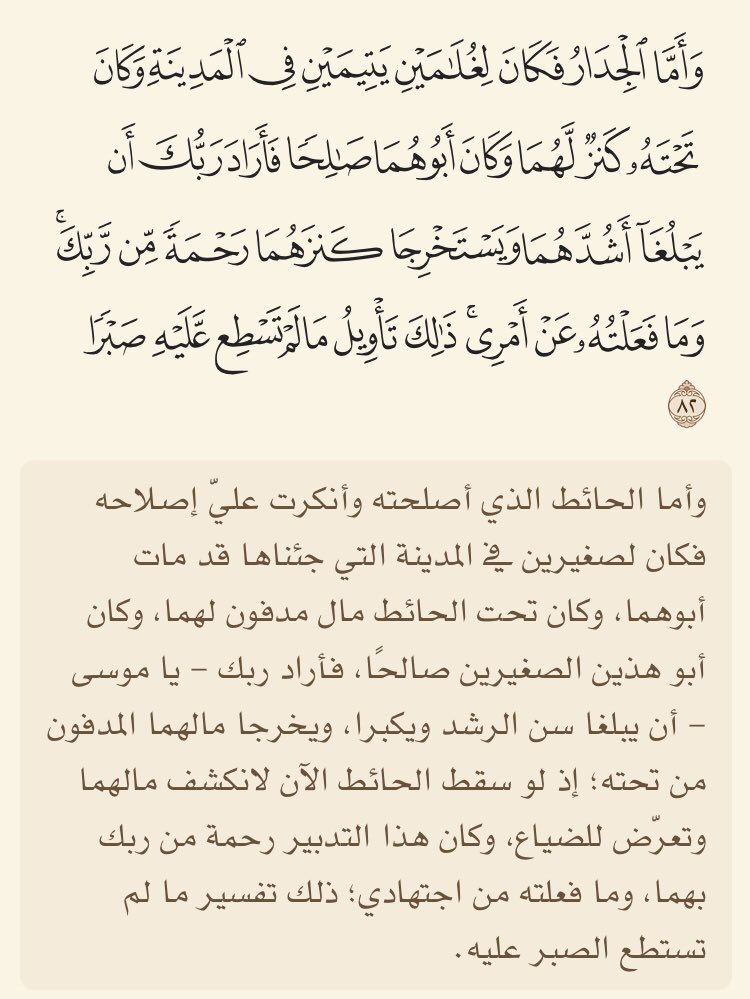 وَأَمَّا ٱلْجِدَارُ فَكَانَ لِغُلَٰمَيْنِ يَتِيمَيْنِ فِى ٱلْمَدِينَةِ وَكَانَ
تَحْتَهُۥ كَنزٌ لَّهُمَا وَكَانَ أَبُوهُمَا صَٰلِحًا فَأَرَادَ رَبُّكَ أَن
يَبْلُغَآ أَشُدَّهُمَا وَيَسْتَخْرِجَا كَنزَهُمَا رَحْمَةً مِّن رَّبِّكَ ۚ
وَمَا فَعَلْتُهُۥ عَنْ أَمْرِى ۚ ذَٰلِكَ تَأْوِيلُ مَا لَمْ تَسْطِع عَّلَيْهِ صَبْرًا
٨٢
وأما الحائط الذي أصلحته وأنكرت عليّ إصلاحه
فكان لصغيرين في المدينة التي جئناها قد مات
أبوهما، وكان تحت الحائط مال مدفون لهما، وكان
أبو هذين الصغيرين صالحًا، فأراد ربك – يا موسى
– أن يبلغا سن الرشد ويكبرا، ويخرجا مالهما المدفون
من تحته؛ إذ لو سقط الحائط الآن لانكشف مالهما
وتعرّض للضياع، وكان هذا التدبير رحمة من ربك
بهما، وما فعلته من اجتهادي؛ ذلك تفسير ما لم
تستطع الصبر عليه.